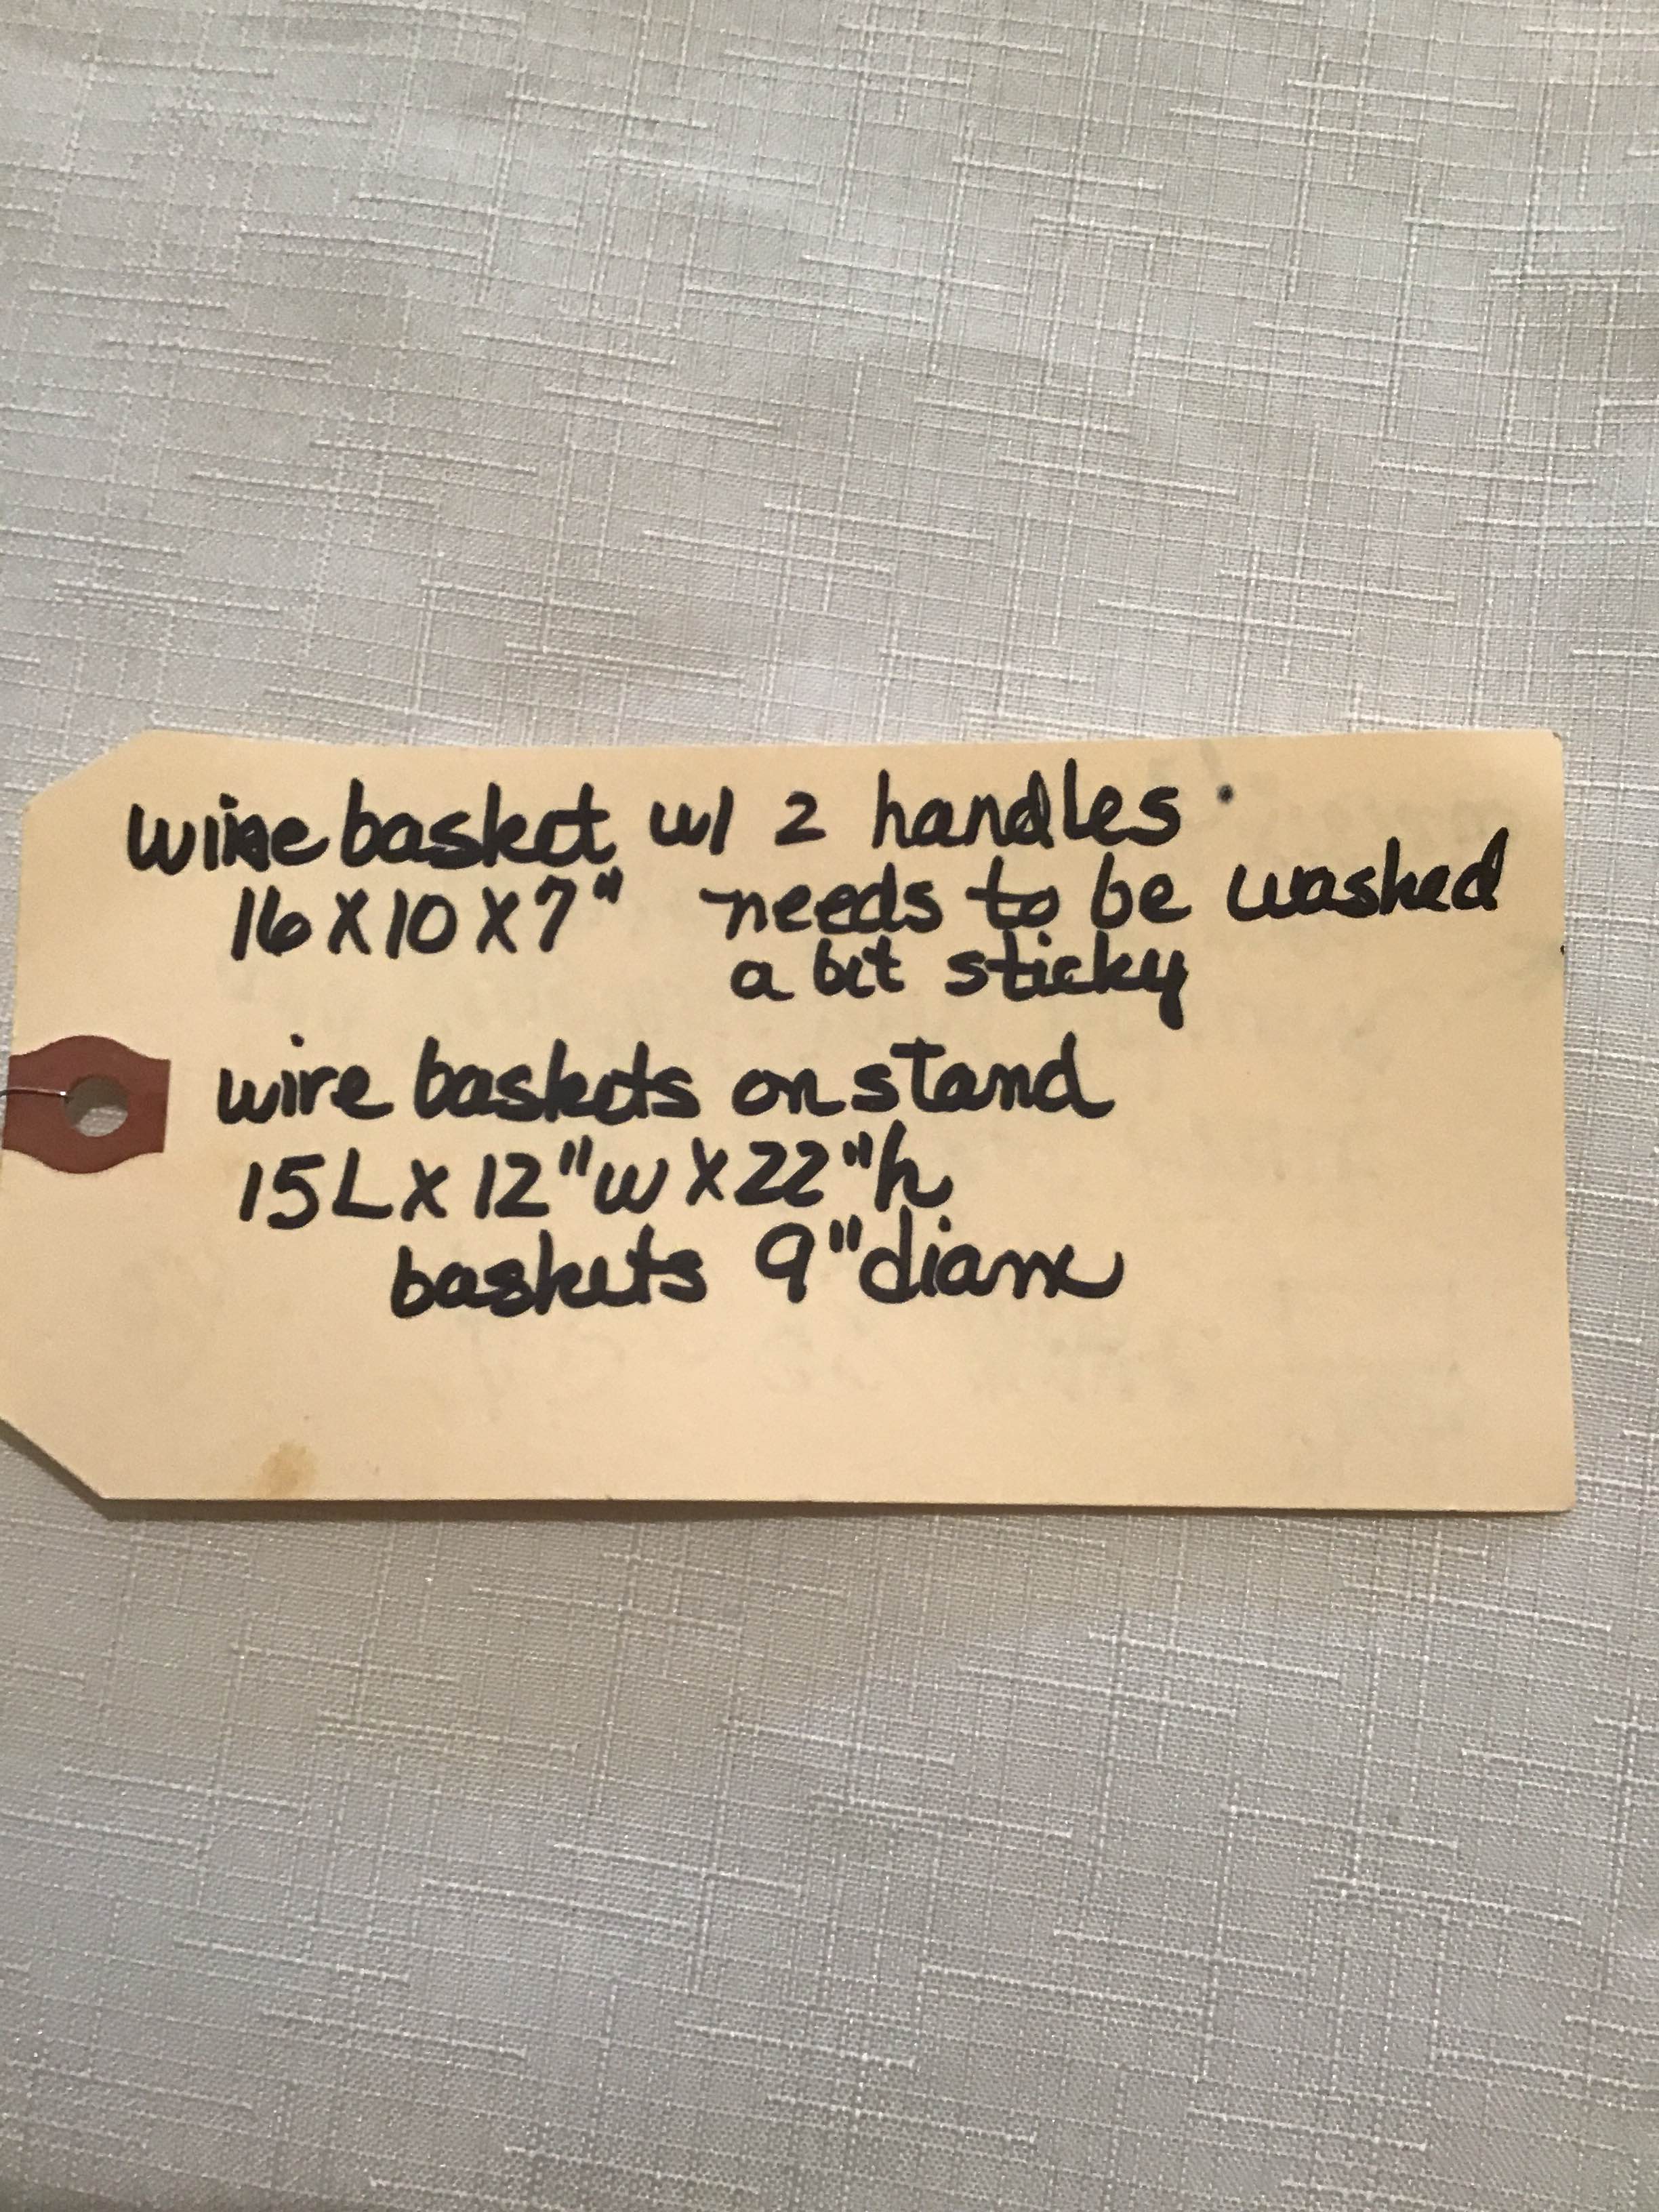 wire basket w/ 2 handles
16 X 10 X 7" needs to be washed
a bit sticky
wire baskets on stand
15 L X 12" w X 22" h
baskets 9" diam